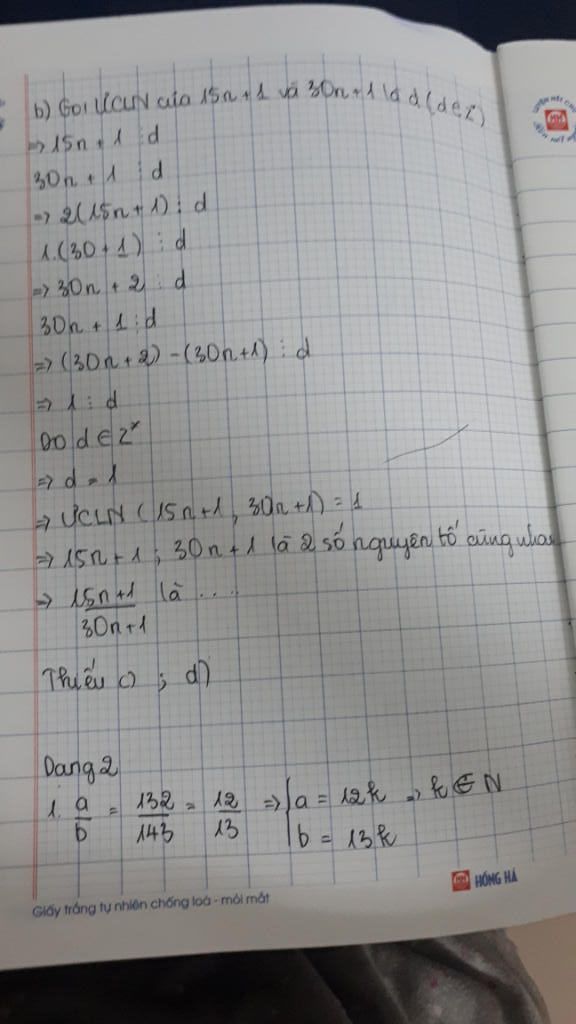 b) Gọi ƯCLN của 15n + 1 và 30n + 1 là d (d ∈ Z)
⇒ 15n + 1 ⋮ d
30n + 1 ⋮ d
⇒ 2(15n + 1) ⋮ d
1.(30 + 1) ⋮ d
⇒ 30n + 2 ⋮ d
30n + 1 ⋮ d
⇒ (30n + 2) - (30n + 1) ⋮ d
⇒ 1 ⋮ d
Do d ∈ Z*
⇒ d = 1
⇒ ƯCLN (15n + 1, 30n + 1) = 1
⇒ 15n + 1 ; 30n + 1 là 2 số nguyên tố cùng nhau
⇒ 15n + 1 / 30n + 1 là ....
Thiếu c) ; d)
Dạng 2
1. a/b = 132/143 = 12/13 ⇒ { a = 12k ⇒ k ∈ N
b = 13k
HỒNG HÀ
Giấy trắng tự nhiên chống loá - mỏi mắt